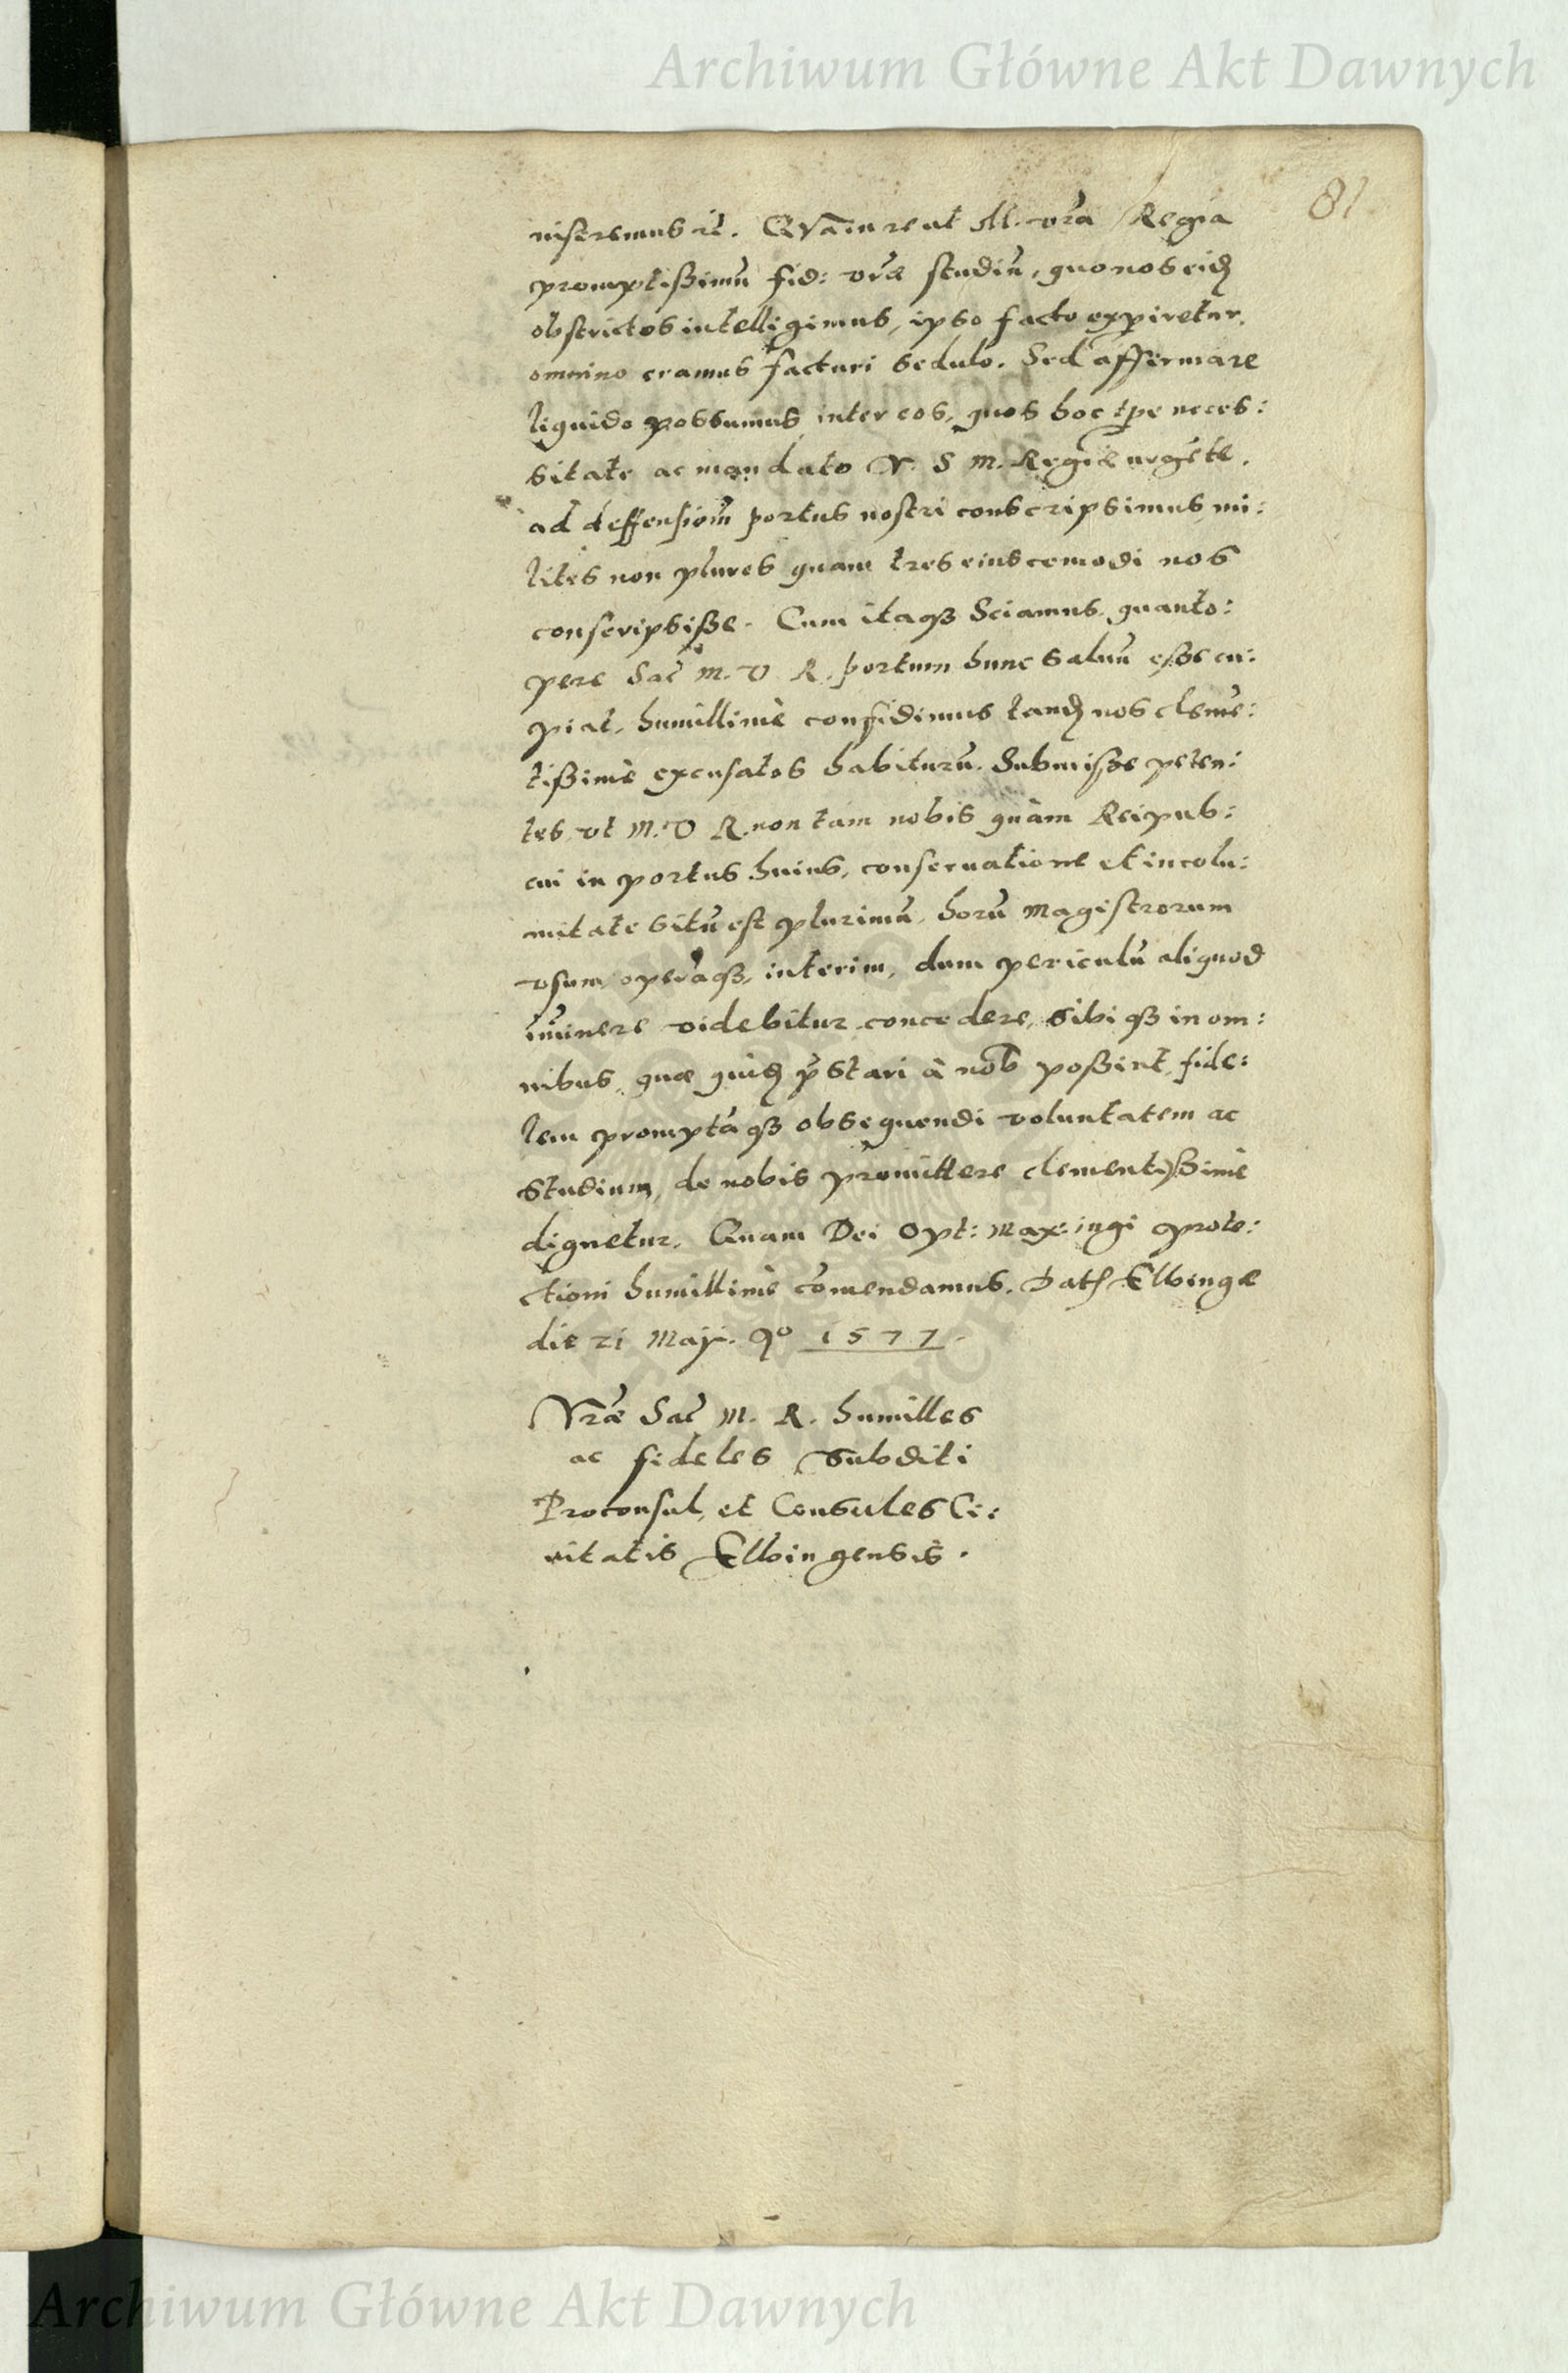 Archiwum Główne Akt Dawnych
81
niseremus ... Qua in re ut M. vrã Regia
promptißimũ fid: vrãe studiũ, quo nos eidẽ
obstrictos intelligimus, ipso facto expiretur,
omnino eramus facturi sedulo. Sed affermare
liquido possumus inter eos, quos hoc tpe neces:
sitate ac mandato V. S M. Regiæ urgẽte,
ad deffensioñ portus nostri conscripsimus mi:
lites non plures quam tres eiuscemodi nos
conscripsiße. Cum itaqȝ Sciamus quanto:
pere Sac M. V R. portum hunc saluũ esse cu:
piat, humillimè confidimus tandẽ nos clemẽ:
tißimè excusatos habiturũ. Submisse peten:
tes, vt M. V R. non tam nobis quàm Reipub:
cui in portus huius, conseruatione et incolu:
mitate sitũ est plurimũ, horũ Magistrorum
vsum operãqȝ, interim, dum periculũ aliquod
im̃inere videbitur concedere, sibiqȝ in om:
nibus, quæ quidẽ p̃stari à nob̃ poßint, fide:
lem promptãqȝ obsequendi voluntatem ac
Studium, de nobis promittere clementißimè
dignetur. Quam Dei Opt: Max: iugi prote:
ctioni humillimè com̃endamus. Datæ Elbingæ
die 21 Maji. Aº 1577.
Vrãe Sac M. R. humilles
ac fideles Subditi
Proconsul, et Consules Ci:
uitatis Elbingensis.
Archiwum Główne Akt Dawnych